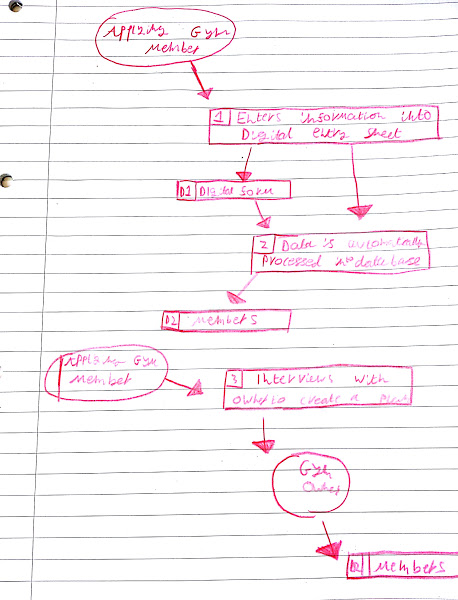 Applying Gym
Member
1 Enters information into
Digital entry sheet
D1 Digital form
2 Data is automatically
Processed into database
D2 Members
Applying Gym
Member
3 Interviews with
Owner to create a Plan
Gym
Owner
D2 Members